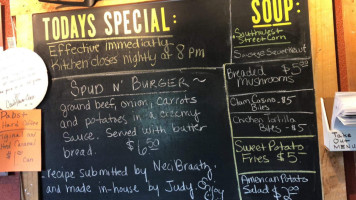 TODAYS SPECIAL:
Effective immediatly
Kitchen closes nightly at 8 pm
SPUD N' BURGER ~
ground beef, onion, carrots
and potatoes in a creamy
Sauce. Served with butter
bread. $6.50
recipe submitted by Neci Braaten,
and made in-house by Judy
SOUP:
Southwest
Street Corn
Sausage Sauerkraut
Breaded $5
Mushrooms
Clam Casino -$5
Bites
Chicken Tortilla
Bites -$5
Sweet Potato
Fries $5-
American Potato
Salad $2.00
Take
Out
MENU